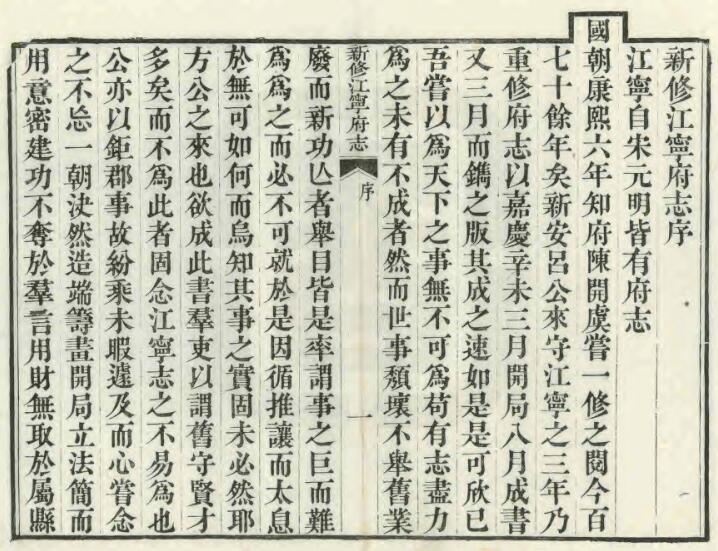 新修江寧府志序
江寧自宋元明皆有府志
國
朝康熙六年知府陳開虞嘗一修之閱今百
七十餘年矣新安呂公來守江寧之三年乃
重修府志以嘉慶辛未三月開局八月成書
又三月而鐫之版其成之速如是是可欣已
吾嘗以為天下之事無不可為苟有志盡力
為之未有不成者然而世事頽壞不舉舊業
新修江寧府志 序 一
廢而新功亾者舉目皆是率謂事之巨而難
為為之而必不可就於是因循推讓而太息
於無可如何而烏知其事之實固未必然耶
方公之來也欲成此書羣吏以謂舊守賢才
多矣而不為此者固念江寧志之不易為也
公亦以鉅郡事故紛乘未暇遽及而心嘗念
之不忘一朝決然造端籌畫開局立法簡而
用意密建功不奪於羣言用財無取於屬縣